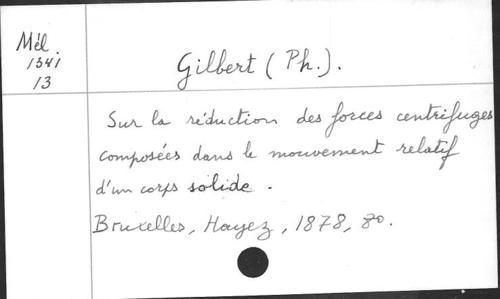 Mél.
1341
13
Gilbert (Ph.).
Sur la réduction des forces centrifuges
composées dans le mouvement relatif
d'un corps solide.
Bruxelles, Hayez, 1878, 8o.